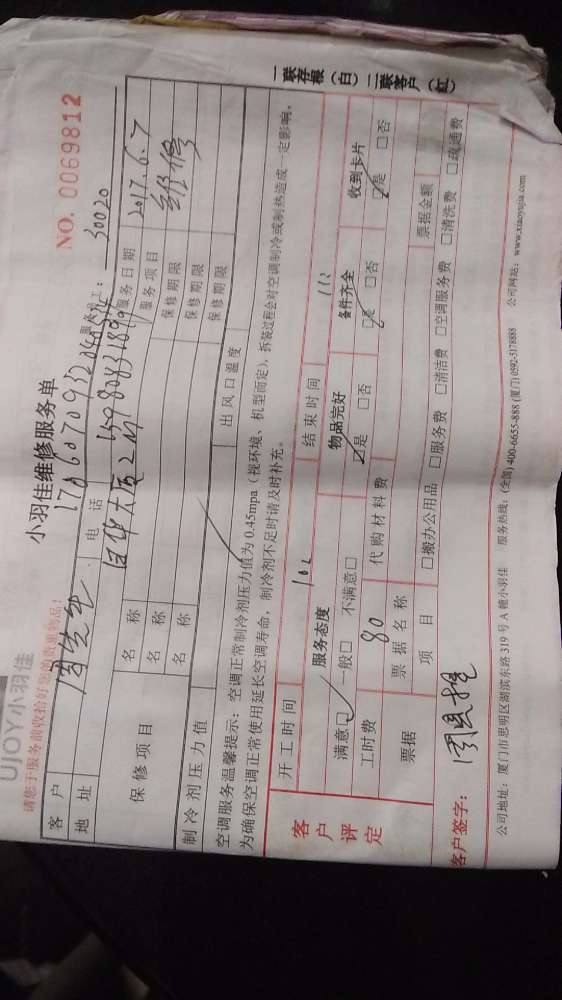 UJOY小羽佳
请您于服务前收拾好您的贵重物品!
小羽佳维修服务单
NO. 0069812
客户 周先生 电话 服务员工: 30020
地址 2017.6.7 服务日期
保修项目 名称 保修期限 服务项目 维修
名称 保修期限
名称 保修期限
制冷剂压力值 出风口温度
空调服务温馨提示: 空调正常制冷剂压力值为 0.45mpa (视环境、机型而定), 拆装过程会对空调制冷或制热造成一定影响,
为确保空调正常使用延长空调寿命, 制冷剂不足时请及时补充。
一联存根(白) 二联客户(红)
客户评定
开工时间 结束时间
服务态度 物品完好 备件齐全 收到卡片
满意□ 一般□ 不满意□ □是 □否 □是 □否 □是 □否
工时费 80 代购材料费
票据 票据名称 票据金额
项目 □搬办公用品 □服务费 □清洁费 □空调服务费 □清洗费 □疏通费
客户签字:
公司地址: 厦门市思明区湖滨东路 319 号 A 幢小羽佳 服务热线: (全国) 400-6655-888 (厦门) 0592-3178888 公司网站: www.xiaoyujia.com